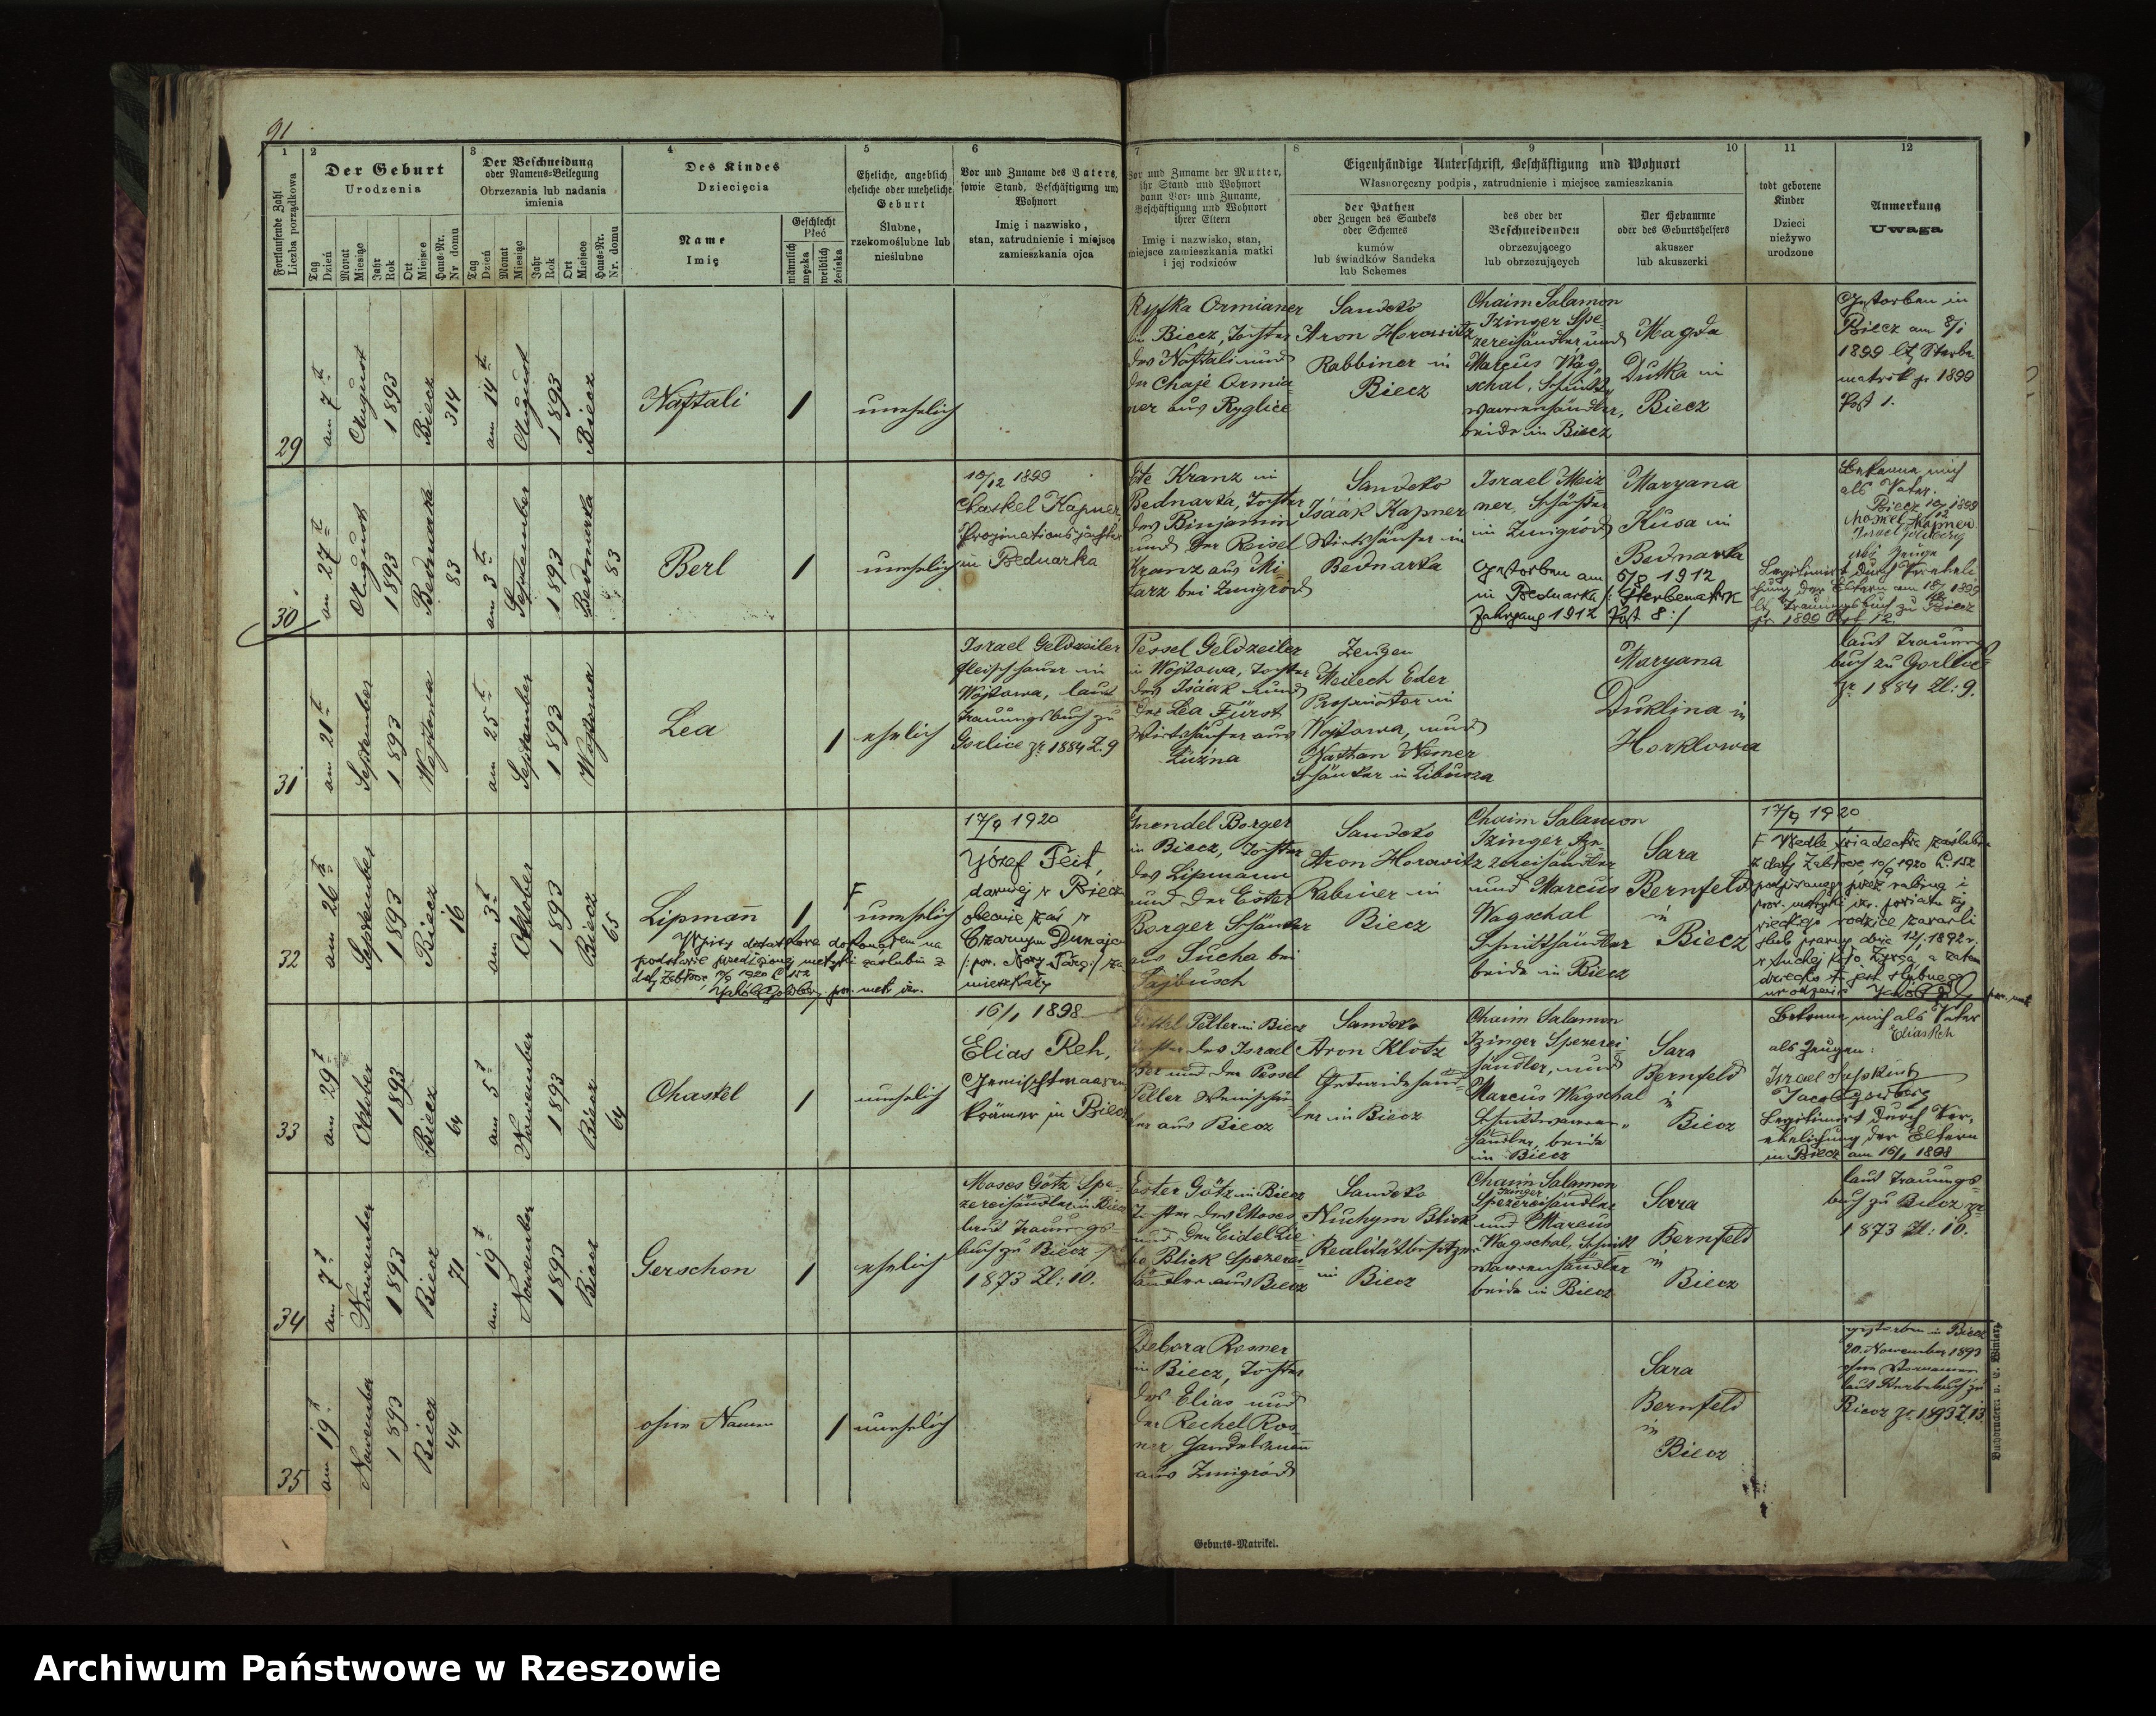 91
1
2
Der Geburt
Urodzenia
3
Der Beschneidung
oder Namens-Beilegung
Obrzezania lub nadania
imienia
4
Des Kindes
Dziecięcia
5
Eheliche, angeblich
eheliche oder uneheliche
Geburt
Ślubne,
rzekomoślubne lub
nieślubne
6
Vor und Zuname des Vaters,
sowie Stand, Beschäftigung und
Wohnort
Imię i nazwisko,
stan, zatrudnienie i miejsce
zamieszkania ojca
Fortlaufende Zahl
Liczba porządkowa
Tag
Dzień
Monat
Miesiąc
Jahr
Rok
Ort
Miejsce
Haus-Nr.
Nr domu
Tag
Dzień
Monat
Miesiąc
Jahr
Rok
Ort
Miejsce
Haus-Nr.
Nr. domu
Name
Imię
Geschlecht
Płeć
männlich
męzka
weiblich
żeńska
7
Vor und Zuname der Mutter,
ihr Stand und Wohnort
dann Vor- und Zuname,
Beschäftigung und Wohnort
ihrer Eltern
Imię i nazwisko, stan,
miejsce zamieszkania matki
i jej rodziców
8
9
10
Eigenhändige Unterschrift, Beschäftigung und Wohnort
Własnoręczny podpis, zatrudnienie i miejsce zamieszkania
der Pathen
oder Zeugen des Sandeks
oder Schemes
kumów
lub świadków Sandeka
lub Schemes
des oder der
Beschneidenden
obrzezującego
lub obrzezujących
Der Hebamme
oder des Geburtshelfers
akuszer
lub akuszerki
11
todt geborene
Kinder
Dzieci
nieżywo
urodzone
12
Anmerkung
Uwaga
29
am 7t
August
1893
Biecz
314
am 14t
August
1893
Biecz
Naftali
1
unehelich
Ryfka Ormianer
in Biecz, Tochter
des Naftali und
der Chaje Ormia-
ner aus Ryglice
Sandeko
Aron Horowitz
Rabbiner in
Biecz
Chaim Salamon
Izinger Spe-
zereihändler und
Marcus Wag-
schal, Schnitt-
waarenhändler,
beide in Biecz
Magda
Dutka in
Biecz
Gestorben in
Biecz am 8/1
1899 lt. Sterbe-
matrik pr 1899
Post 1.
30
am 27t
August
1893
Bednarka
83
am 3t
September
1893
Bednarka
83
Berl
1
unehelich
10/12 1899
Chaskel Kapner
Propinationspächter
in Bednarka
Ete Kranz in
Bednarka, Tochter
des Binjamin
und der Reisel
Kranz aus Mi-
tarz bei Zmigród
Sandeko
Isáák Kapner
Wirtshäuser in
Bednarka
Israel Meiz
ner, Schächter
in Zmigród
Maryana
Kusa in
Bednarka
Gestorben am 5/8 1912
in Bednarka /: Sterbematrik
Jahrgang 1912 Post 8 :/
Bekenne mich
als Vater.
Biecz 10/12 1899
Chaskel Kapner
als Zeuge
Legitimirt durch Vereheli-
chung der Eltern am
lt. Trauungsbuch zu Biecz
pr 1899 Post 12.
31
am 21t
September
1893
Wojtowa
am 25t
September
1893
Wojtowa
Lea
1
ehelich
Israel Geldzeiler
Fleischhauer in
Wojtowa, laut
Trauungsbuch zu
Gorlice pr 1884 Z. 9
Pessel Geldzeiler
in Wojtowa, Tochter
des Isáák und
der Lea Fürst
Wirtshäuser aus
Łużna
Zeugen
Meilech Eder
Propinator in
Wojtowa, und
Nathan Werner
Schänker in Libusza
Maryana
Duklina in
Harklowa
laut Trauungs-
buch zu Gorlice
pr 1884 Zl: 9.
32
am 26t
September
1893
Biecz
16
am 3t
Oktober
1893
Biecz
65
Lipmann
1
F
unehelich
Wpisy dodatkowe dokonałem na
podstawie przedłożonej metryki zaślubin z
17/9 1920
Józef Feit,
dawniej w Bieczu
obecnie zaś w
Czarnym Dunajcu
/: pow. Nowy Targ :/ za
mieszkały
Gnendel Borger
in Biecz, Tochter
des Lipmann
und der Ester
Borger Schänker
aus Sucha bei
Sajbusch
Sandeko
Aron Horowitz
Rabiner in
Biecz
Chaim Salamon
Izinger Spe-
zereihändler
und Marcus
Wagschal
Schnitthändler
beide in Biecz
Sara
Bernfeld
in
Biecz
17/9 1920
33
am 29t
Oktober
1893
Biecz
64
am 5t
November
1893
Biecz
64
Chaskel
1
unehelich
16/1 1898
Elias Reh,
Gemischtwaaren-
krämer in Biecz
Gittel Peller in Biecz
Tochter des Israel
Ber und der Pessel
Peller Weinschän-
ker aus Biecz
Sandeko
Aron Klotz
Getreidehänd-
ler in Biecz
Chaim Salamon
Izinger Spezerei-
händler, und
Marcus Wagschal
Schnittwaaren-
händler, beide
in Biecz
Sara
Bernfeld
in
Biecz
Bekenne mich als Vater
Elias Reh
als Zeugen:
Legitimirt durch Ver-
ehelichung der Eltern
in Biecz am 16/1 1898
34
am 7t
November
1893
Biecz
71
am 19t
November
1893
Biecz
Gerschon
1
ehelich
Moses Götz Spe-
zereihändler in Biecz
laut Trauungs-
buch zu Biecz pr
1873 Zl: 10.
Ester Götz in Biecz
Tochter des Moses
und der Eidel Lie
ba Blick Spezerei-
händler aus Biecz
Sandeko
Nuchym Blick
Realitätbesitzer
in Biecz
Chaim Salamon
Izinger
Spezereihändler
und Marcus
Wagschal, Schnitt-
waarenhändler
beide in Biecz
Sara
Bernfeld
in
Biecz
laut Trauungs-
buch zu Biecz pr
1873 Zl: 10.
35
am 19t
November
1893
Biecz
44
ohne Namen
1
unehelich
Debora Rosner
in Biecz, Tochter
des Elias und
der Rechel Ros-
ner Handelsmann
aus Zmigród
Sara
Bernfeld
in
Biecz
gestorben in Biecz
20. November 1893
ohne Vornamen
laut Sterbebuch zu
Biecz pr 1893 Z 13
Geburts-Matrikel.
Archiwum Państwowe w Rzeszowie